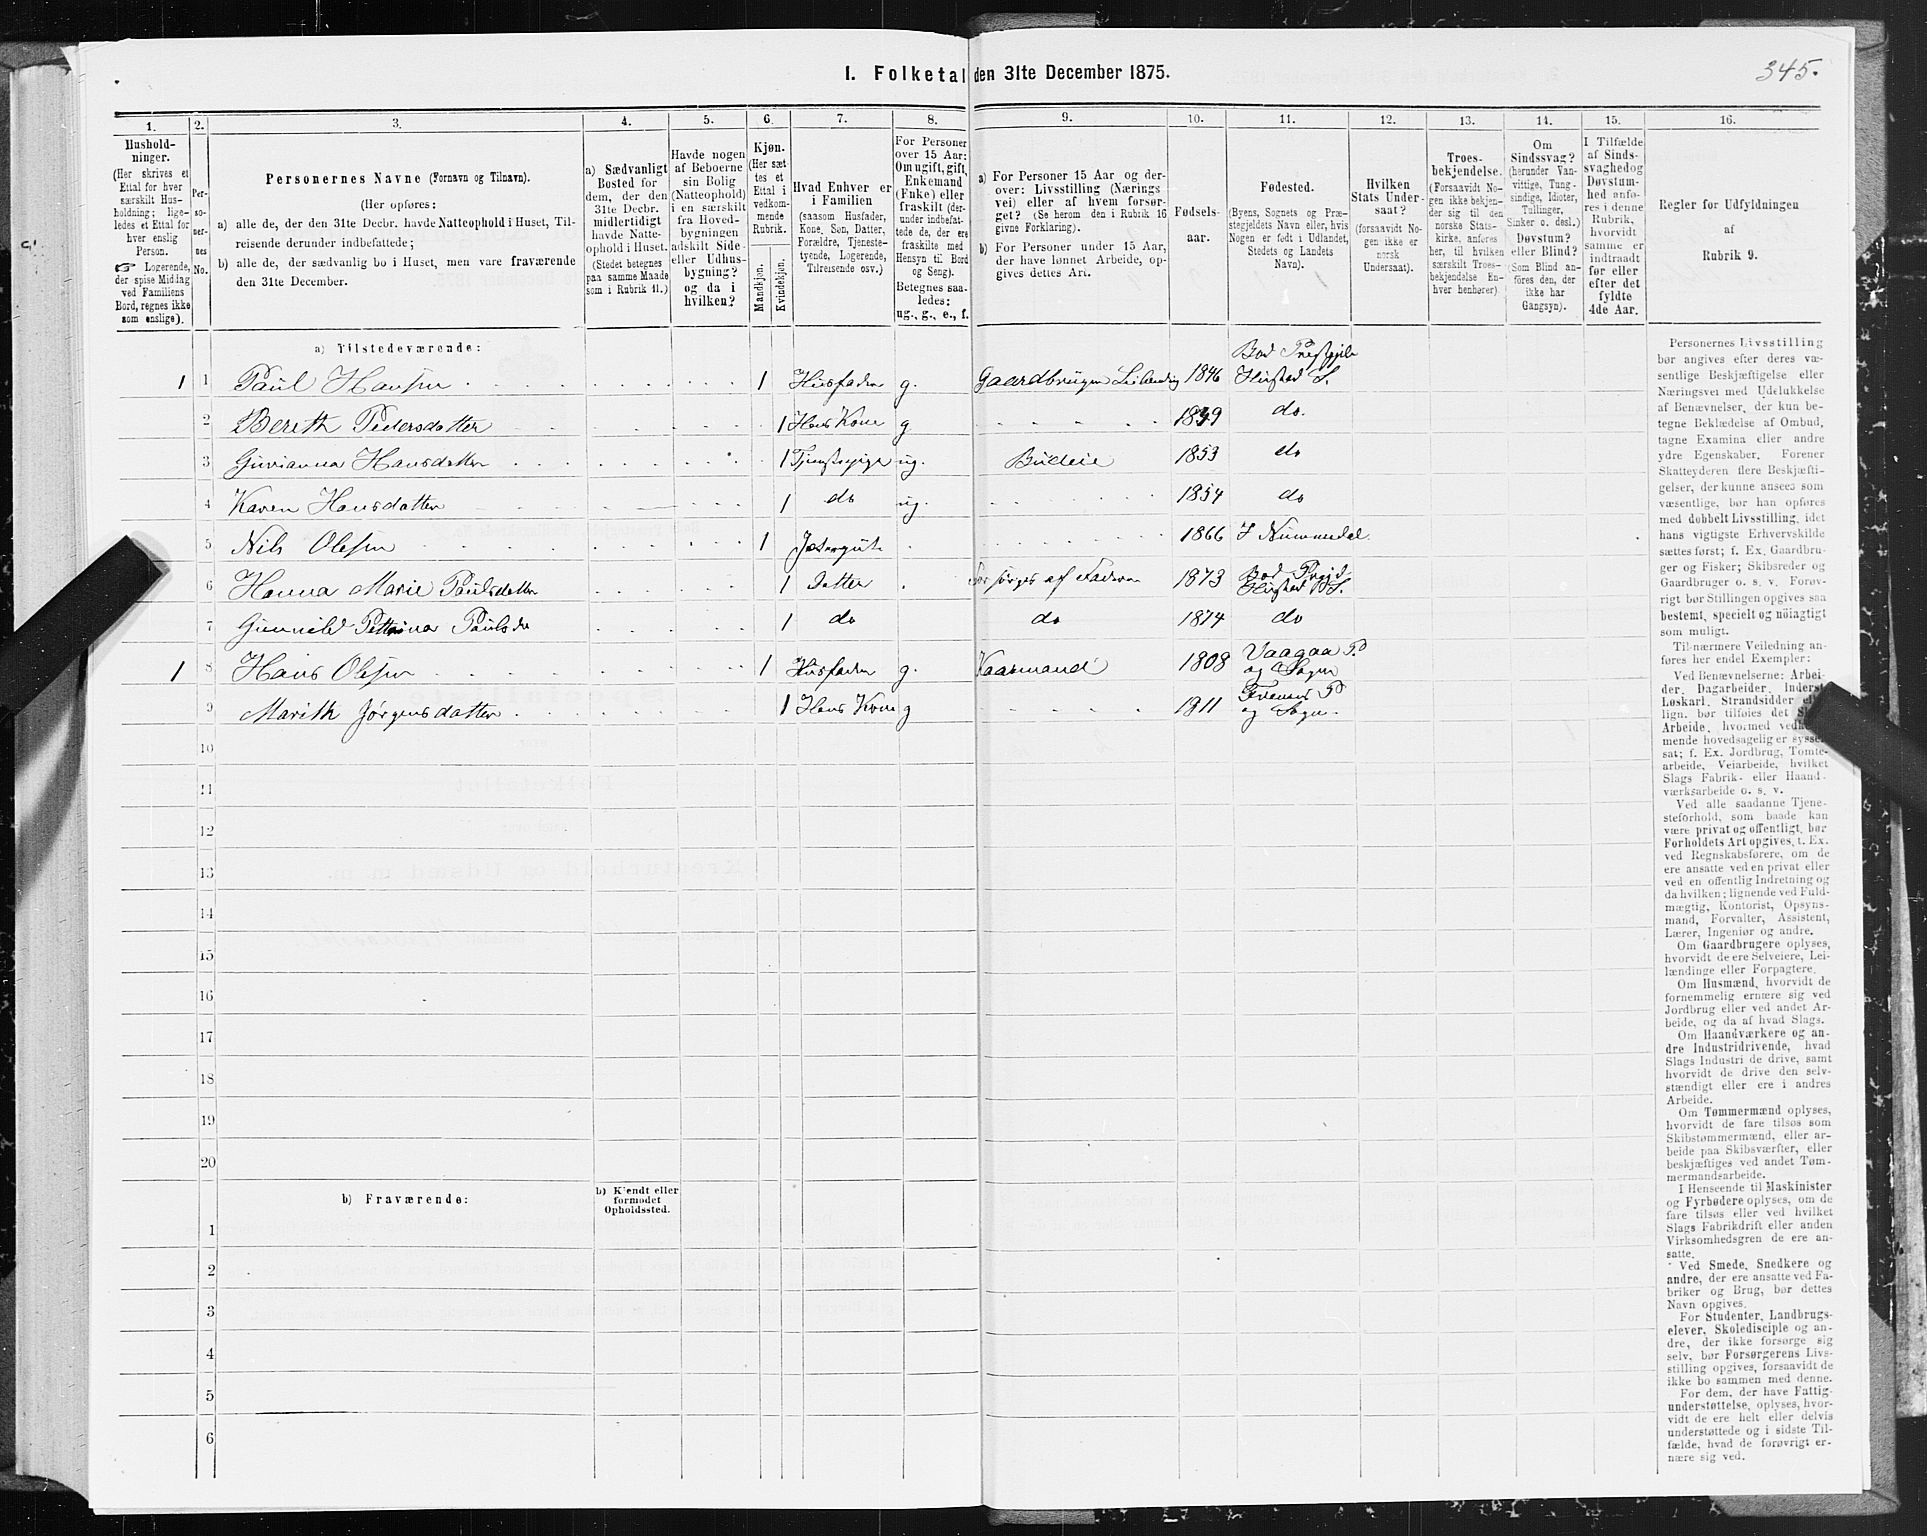 I. Folketal den 31te December 1875.
345.
1.
Hushold-
ninger.
(Her skrives et
Ettal for hver
særskilt Hus-
holdning; lige-
ledes et Ettal for
hver enslig
Person.
☞ Logerende,
der spise Middag
ved Familiens
Bord, regnes ikke
som enslige).
2.
Per-
so-
ner-
nes
No.
3.
Personernes Navne (Fornavn og Tilnavn).
(Her opføres:
a) alle de, der den 31te Decbr. havde Natteophold i Huset, Til-
reisende derunder indbefattede;
b) alle de, der sædvanlig bo i Huset, men vare fraværende
den 31te December.
4.
a) Sædvanligt
Bosted for
dem, der den
31te Decbr.
midlertidigt
havde Natte-
ophold i Huset.
(Stedet betegnes
paa samme Maade
som i Rubrik 11.)
5.
Havde nogen
af Beboerne
sin Bolig
(Natteophold)
i en særskilt
fra Hoved-
bygningen
adskilt Side-
eller Udhus-
bygning?
og da i
hvilken?
6.
Kjøn.
(Her sæt-
tes et
Ettal i
vedkom-
mende
Rubrik.
Mandkjøn.
Kvindekjøn.
7.
Hvad Enhver er
i Familien
(saasom Husfader,
Kone, Søn, Datter,
Forældre, Tjeneste-
tyende, Logerende,
Tilreisende osv.)
8.
For Personer
over 15 Aar:
Om ugift, gift,
Enkemand
(Enke) eller
fraskilt (der-
under indbefat-
tede de, der ere
fraskilte med
Hensyn til Bord
og Seng).
Betegnes saa-
ledes:
ug., g., e., f.
9.
a) For Personer 15 Aar og der-
over: Livsstilling (Nærings-
vei) eller af hvem forsør-
get? (Se herom den i Rubrik 16
givne Forklaring).
b) For Personer under 15 Aar,
der have lønnet Arbeide, op-
gives dettes Ari.
10.
Fødsels-
aar.
11.
Fødested.
(Byens, Sognets og Præ-
stegjeldets Navn eller, hvis
Nogen er født i Udlandet,
Stedets og Landets
Navn).
12.
Hvilken
Stats Under-
saat?
(forsaavidt No-
gen ikke er
norsk
Undersaat).
13.
Troes-
bekjendelse.
(Forsaavidt No-
gen ikke bekjen-
der sig til den
norske Stats-
kirke, anføres
her, til hvilken
særskilt Troes-
bekjendelse En-
hver henhører)
14.
Om
Sindssvag?
(herunder Van-
vittige, Tung-
sindige, Idioter,
Tullinger,
Sinker o. desl.)
Døvstum?
eller Blind?
(Som Blind an-
føres den, der
ikke har
Gangsyn).
15.
I Tilfælde
af Sinds-
svaghed og
Døvstum-
hed anfø-
res i denne
Rubrik,
hvorvidt
samme er
indtraadt
før eller
efter det
fyldte
4de Aar.
16.
Regler for Udfyldningen
af
Rubrik 9.
a) Tilstedeværende:
1 1 Paul Hansen 1 Husfader g. Gaardbruger Leilending 1846 Bod Prestegjeld
2 Bereth Pedersdatter 1 Hans Kone g 1849 do.
3 Hansdatter 1 Tjenstepige ug. Budeie 1853 do
4 Karen Hansdatter 1 do ug. 1854 do
5 Nils Olesen 1 1866
6 Hanna Marie Paulsdatter 1 datter Forsørges af Faderen 1873 Bod
7 Paulsdr 1 do do 1874 do
1 8 Hans Olesen 1 Husfader g. Kaarmand 1808 Vaagaa P.
og Sogn
9 Marith Jørgensdatter 1 Hans Kone g 1811
og Sogn.
10
11
12
13
14
15
16
17
18
19
20
b) Fraværende:
b) Kjendt eller
formodet
Opholdssted.
1
2
3
4
5
6
Personernes Livsstilling
bør angives efter deres væ-
sentlige Beskjæftigelse eller
Næringsvei med Udelukkelse
af Benævnelser, der kun be-
tegne Beklædelse af Ombud,
tagne Examina eller andre
ydre Egenskaber. Forener
Skatteyderen flere Beskjæfti-
gelser, der kunne ansees som
væsentlige, bør han opføres
med dobbelt Livsstilling, idet
hans vigtigste Erhvervskilde
sættes først; f. Ex. Gaardbru-
ger og Fisker; Skibsreder og
Gaardbruger o. s. v. Forøv-
rigt bør Stillingen opgives saa
bestemt, specielt og nöiagtigt
som muligt.
Til nærmere Veiledning an-
føres her endel Exempler:
Ved Benævnelserne: Arbei-
der, Dagarbeider, Inderst,
Løskarl, Strandsidder
lign. bør tilføies det
Arbeide, hvormed vedkom-
mende hovedsagelig er syssel-
sat; f. Ex. Jordbrug, Tomte-
arbeide, Veiarbeide, hvilket
Slags Fabrik- eller Haand-
værksarbeide o. s. v.
Ved alle saadanne Tjene-
steforhold, som baade kan
være privat og offentligt, bør
Forholdets Art opgives, t. Ex.
ved Regnskabsførere, om de
ere ansatte ved en privat eller
ved en offentlig Indretning og
da hvilken; lignende ved Fuld-
mægtig, Kontorist, Opsyns-
mand, Forvalter, Assistent,
Lærer, Ingeniør og andre.
Om Gaardbrugere oplyses,
hvorvidt de ere Selveiere, Lei-
lændinge eller Forpagtere.
Om Husmænd, hvorvidt de
fornemmelig ernære sig ved
Jordbrug eller ved andet Ar-
beide, og da af hvad Slags.
Om Haandværkere og an-
dre Industridrivende, hvad
Slags Industri de drive, samt
hvorvidt de drive den selv-
stændigt eller ere i andres
Arbeide.
Om Tømmermænd oplyses,
hvorvidt de fare tilsøs som
Skibstømmermænd, eller ar-
beide paa Skibsværfter, eller
beskjæftiges ved andet Tøm-
mermandsarbeide.
I Henseende til Maskinister
og Fyrbødere oplyses, om de
fare tilsøs eller ved hvilket
Slags Fabrikdrift eller anden
Virksomhedsgren de ere an-
satte.
Ved Smede, Snedkere og
andre, der ere ansatte ved Fa-
briker og Brug, bør dettes
Navn opgives.
For Studenter, Landbrugs-
elever, Skoledisciple og an-
dre, der ikke forsørge sig
selv, bør Forsørgerens Livs-
stilling opgives, forsaavidt de
ikke bo sammen med denne.
For dem, der have Fattig-
understøttelse, oplyses, hvor-
vidt de ere helt eller delvis
understøttede og i sidste Til-
fælde, hvad de forøvrigt er-
nære sig ved.